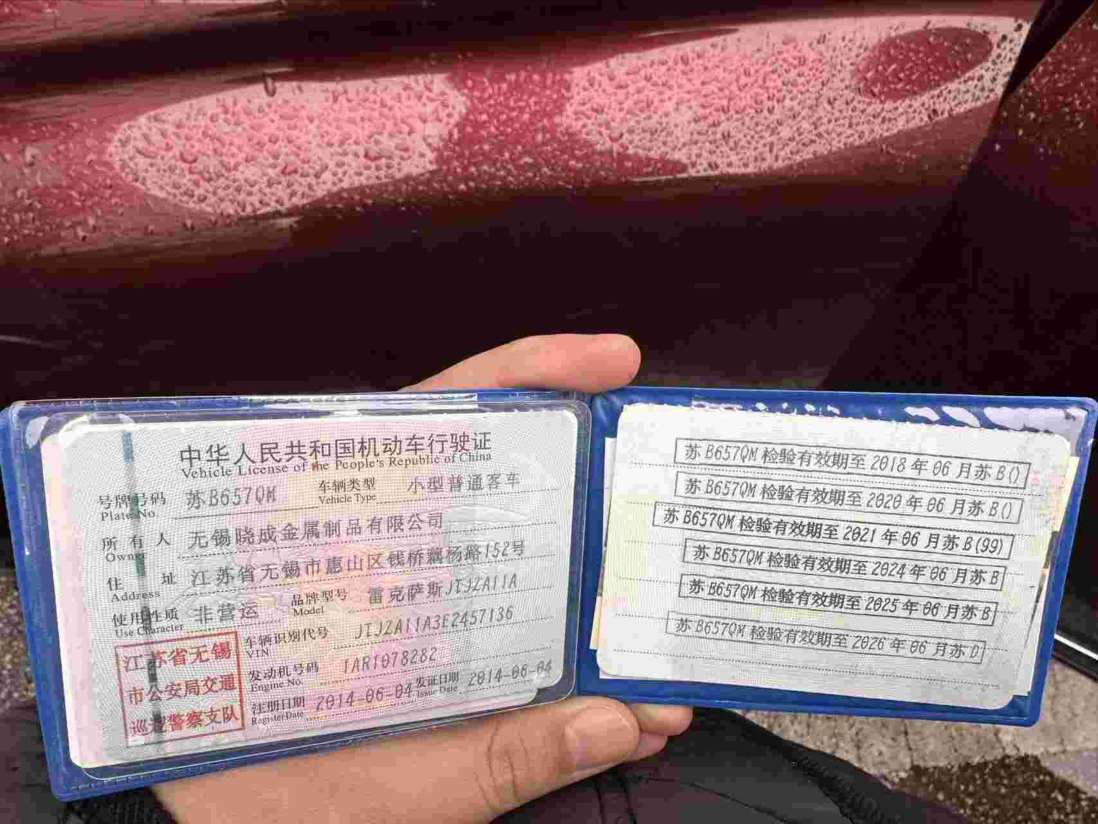 中华人民共和国机动车行驶证
Vehicle License of the People's Republic of China
号牌号码 苏B657QM 车辆类型 小型普通客车
Plate No. Vehicle Type
所有人 无锡晓成金属制品有限公司
Owner
住址 江苏省无锡市惠山区钱桥藕杨路152号
Address
使用性质 非营运 品牌型号 雷克萨斯JTJZA11A
Use Character Model
车辆识别代号 JTJZA11A3E2457136
VIN
发动机号码 1AR1078282
Engine No.
注册日期 2014-06-04 发证日期 2014-06-04
Register Date Issue Date
江苏省无锡
市公安局交通
巡逻警察支队
苏B657QM检验有效期至2018年06月苏B()
苏B657QM检验有效期至2020年06月苏B()
苏B657QM检验有效期至2021年06月苏B(99)
苏B657QM检验有效期至2024年06月苏B
苏B657QM检验有效期至2025年06月苏B
苏B657QM检验有效期至2026年06月苏D